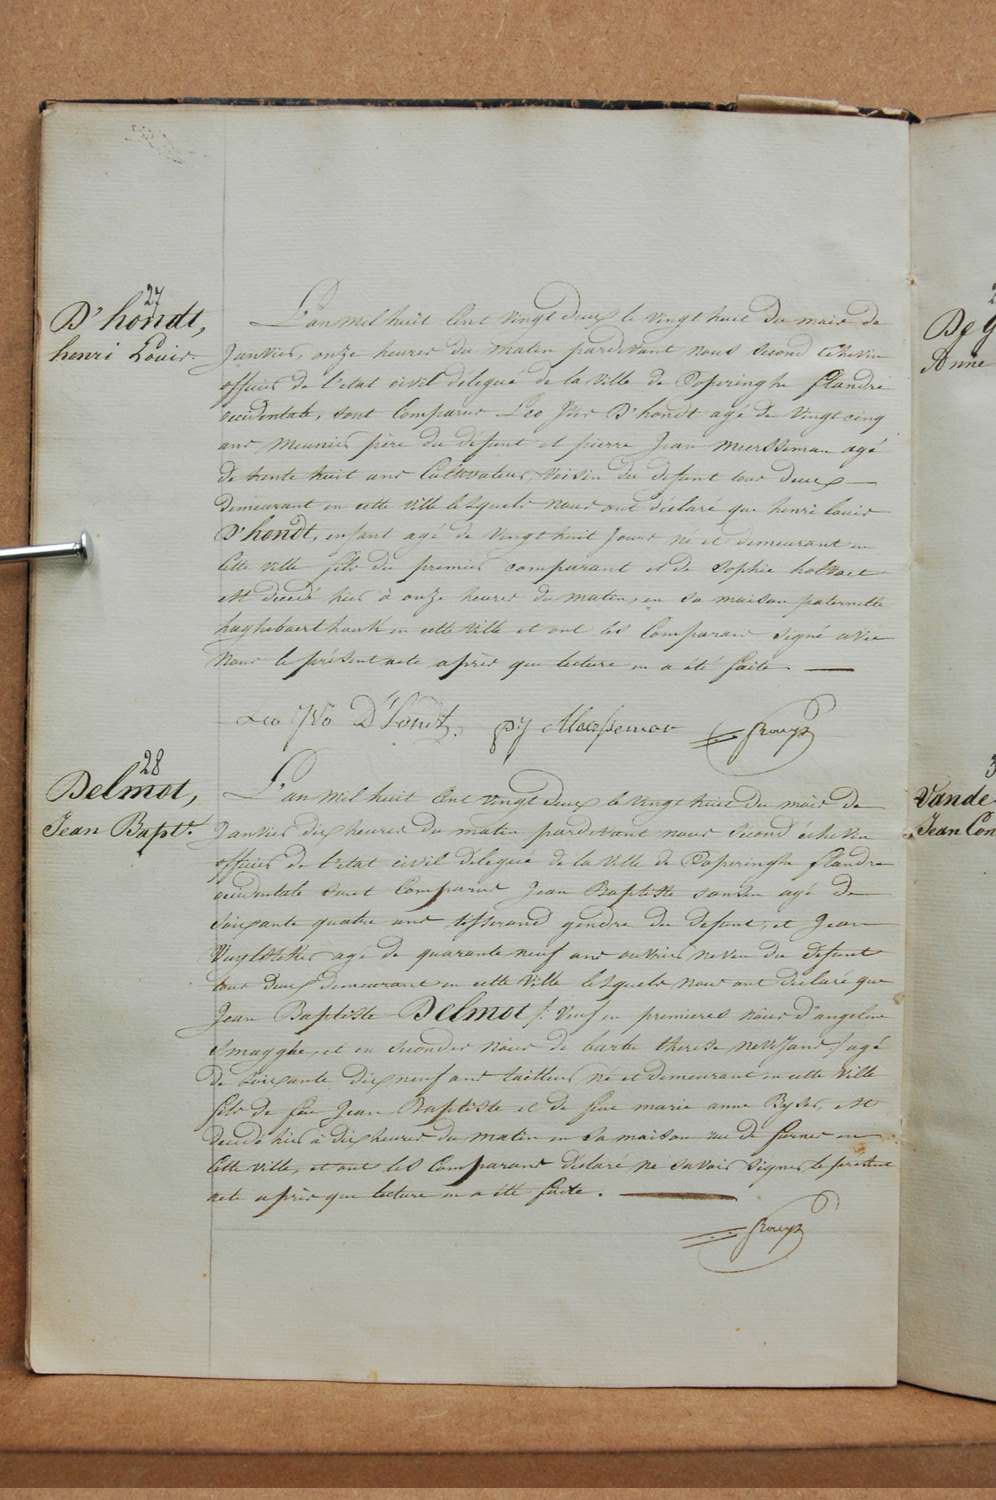 27
D'hondt,
henri Louis
L'an mil huit Cent vingt deux le vingt huit du mois de
Janvier, onze heures du matin pardevant nous second échevin
officier de l'etat civil délegué de la ville de Poperinghe flandre
occidentale, sont Comparus Leo Ivo D'hondt agé de vingt cinq
ans Meunier père du défunt et pierre Jean Meersseman agé
de trente huit ans Cultivateur, Voisin du defunt tous deux
demeurant en cette ville lesquels nous ont déclaré que henri louis
D'hondt, enfant agé de vingt huit Jours né et demeurant en
Cette ville fils du premier comparant et de Sophie holvoet
est decedé hier à onze heures du matin, en sa maison paternelle
haghebaert houk en cette ville et ont les Comparans signé avec
Nous le présent acte après que lecture en a été faite.
Leo Ivo D'hondt. pj Meersseman
28
Delmot,
Jean Bapte.
L'an mil huit Cent vingt deux le vingt huit du mois de
Janvier dix heures du matin pardevant nous second échevin
officier de l'etat civil délegué de la ville de Poperinghe flandre
occidentale sont Comparus Jean Baptiste sansen agé de
soixante quatre ans tisserand gendre du defunt, et Jean
agé de quarante neuf ans ouvrier neveu du défunt
tous deux demeurant en cette ville lesquels nous ont declaré que
Jean Baptiste Delmot /: Veuf en premieres nôces d'angeline
Smagghe, et en secondes nôces de barbe therese :/ agé
de soixante dix neuf ans tailleur né et demeurant en cette ville
fils de feu Jean Baptiste et de feue marie anne Byser, est
decedé hier à dix heures du matin en sa maison rue de furnes en
Cette ville, et ont les Comparans déclaré ne savoir signer le présent
acte après que lecture en a été faite.
De
Anne
Vande
Jean Con